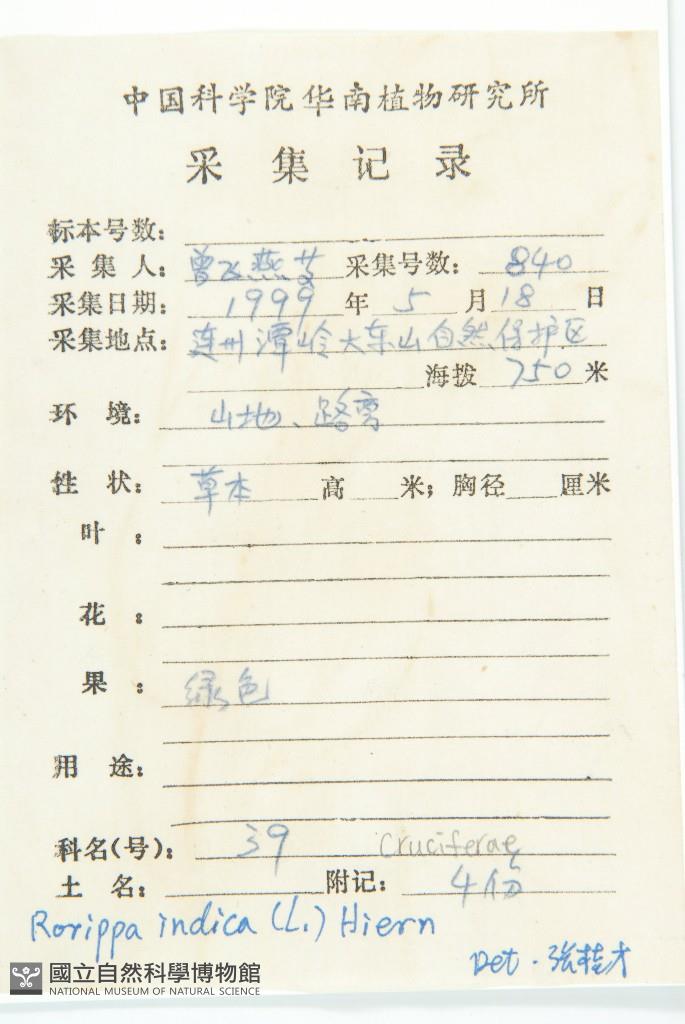 中国科学院华南植物研究所
采集记录
标本号数：
采集人：曾飞燕等 采集号数：840
采集日期：1999年5月18日
采集地点：连州潭岭大东山自然保护区
海拨 750 米
环境：山地、路旁
性状：草本 高 米；胸径 厘米
叶：
花：
果：绿色
用途：
科名(号)：39 Cruciferae
土名： 附记：4份
Rorippa indica (L.) Hiern
Det. 張桂才
國立自然科學博物館
NATIONAL MUSEUM OF NATURAL SCIENCE